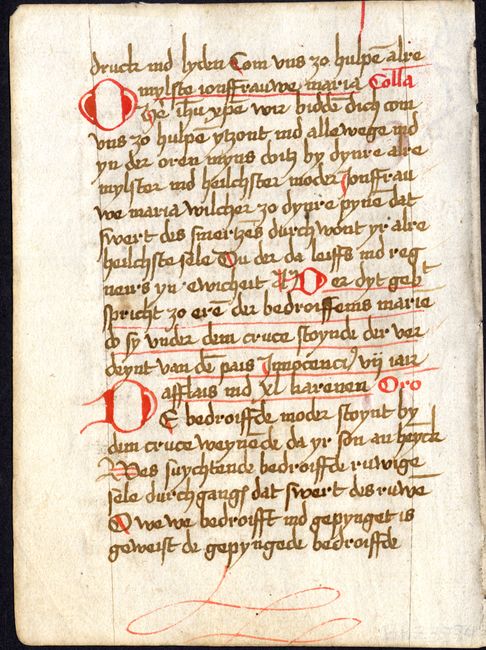 druck ind lyden Com vns zo hulpē alre
mylste jonffrauwe maria Colla
O h'e ihū xpē wir biddē dich com
vns zo hulpē ytzont ind allewege ind
yn der oren myns doitz by dynre alre
mylster ind heilchster moder Jonffrau
we maria wilcher zo dynre pynē dat
swert des smertzes durchwont yr alre
heilchste sele Du der da leiffs ind reg
neirs yn ewicheit Der dyt geb't
spricht zo erē der bedroiffenis marie
do sy vnder dem cruce stoynde der ver
deynt van dē pais Innocenci, vij jair
afflais ind xl karenen Oro
DE bedroiffde moder stoynt by
dem cruce weynēde da yr son an heyck
Wes suychtende bedroiffde ruwige
sele durchganck dat swert des ruwē
O we we bedroifft ind gepynget is
geweist de gepyngede bedroiffde